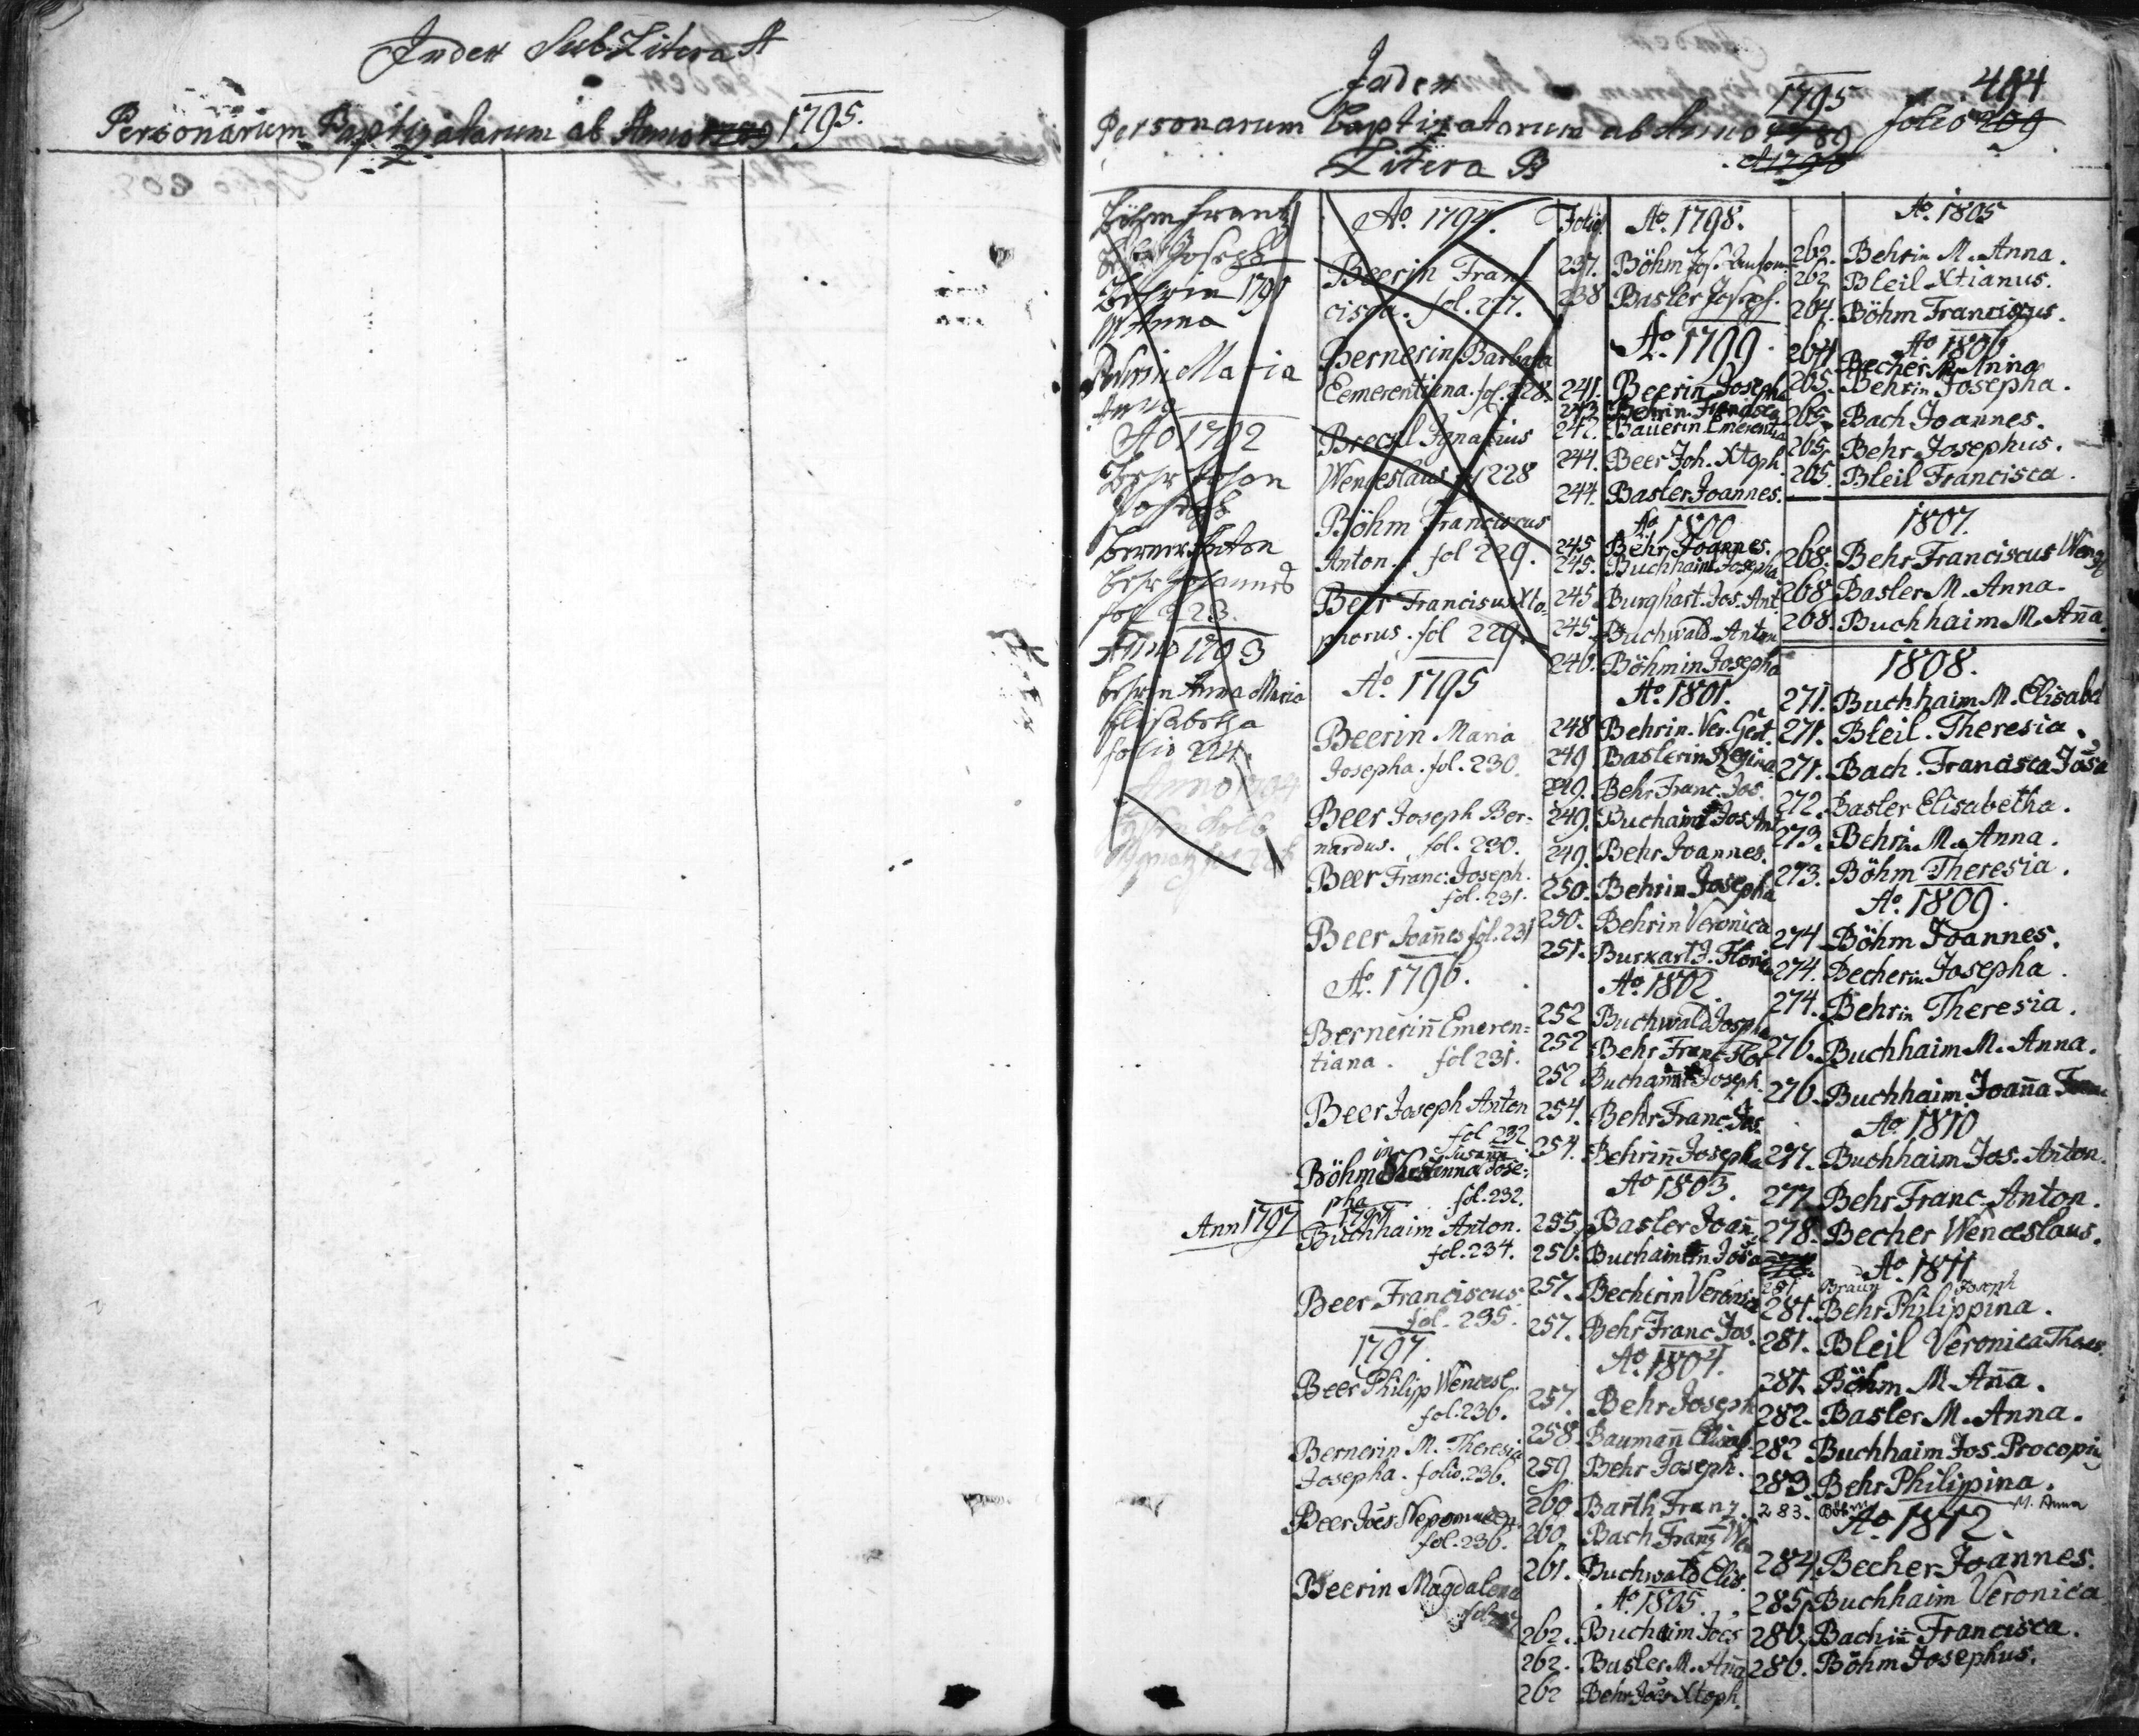 Index Sub Litera A
Personarum Baptizatarum ab Anno 1789 1795.
Index
Personarum Baptizatarum ab Anno 1789 1795 folio 209 484
Litera B A 1790
Böhm Frantz
Joseph
Behrin 1791
M Anna
Maria
Anna
Ao 1792
Behr Johan
Joseph
Berner Anton
Behr Johannes
fol 223.
Anno 1793
Behrin Anna Maria
Elisabetha
folio 224.
Anno 1794
Ao. 1794.
Beerin Fran=
cisca. fol. 227.
Bernerin Barbara
Eemerentiana. fol. 228.
Ignatius
Wenceslaus f 228
Böhm Franciscus
Anton. fol 229.
Beer Franciscus Xto=
phorus. fol 229.
Ao. 1795
Beerin Maria
Josepha. fol. 230.
Beer Joseph Ber=
nardus. fol. 230.
Beer Franc: Joseph.
fol. 231.
Beer Joan̄es fol. 231
Ao. 1796.
Bernerin̄ Emeren=
tiana. fol 231.
Beer Joseph Anton
fol 232
Böhmin Susanna Jose=
Susann
pha fol. 232.
Ann 1797 1797
Buchhaim Anton.
fol. 234.
Beer Franciscus
fol. 235.
1797.
Beer Philipp Wencesl.
fol. 236.
Bernerin M. Theresia
Josepha. folio. 236.
Beer Joēs Nepomucen.
fol. 236.
Beerin Magdalena
fol. 237
Folio. Ao. 1798.
237. Böhm Jos. Anton.
238 Basler Joseph.
Ao. 1799.
241. Beerin Josepha
243 Behrin Francisca
242. Bauerin Emerentia
244. Beer Joh. Xtoph.
244. Basler Joannes.
Ao 1800
245 Behr Joannes.
245. Buchhaim Josepha
245 Burghart Jos. Ant.
245. Buchwald Anton
246. Böhmin Josepha
Ao. 1801.
248 Behrin Ver. Gert.
249 Baslerin Regina
249. Behr Franc. Jos.
249. Buchaim Jos. Ant
249. Behr Joannes.
250. Behrin Josepha
250. Behrin Veronica
251. Burkart J. Florian
Ao. 1802
252 Buchwald Josepha
252 Behr Franc. Flor
252 Buchaim Joseph.
254. Behr Franc. Jos.
254. Behrin̄ Josepha
Ao 1803.
255. Basler Joan̄.
256. Buchaimin Josa
257. Becherin Veronica
257. Behr Franc Jos.
Ao. 1804.
257. Behr Joseph
258. Bauman̄ Elisab.
259 Behr Joseph.
260. Barth Franz.
260. Bach Franz We
261. Buchwald Elis.
Ao. 1805.
262. Buchaim Joēs
262. Basler M. An̄a
262 Behr Joēs Xtoph.
Ao. 1805
262. Behrin M. Anna.
262 Bleil Xtianus.
264. Böhm Franciscus.
Ao 1806
264 Becher M. Anna
265. Behrin Josepha.
265. Bach Joannes.
265. Behr Josephus.
265. Bleil Francisca.
1807.
268. Behr Franciscus Wenzl
268 Basler M. Anna.
268. Buchhaim M. An̄a.
1808.
271. Buchhaim M. Elisabet
271. Bleil. Theresia.
271. Bach. Francisca Josa
272. Basler Elisabetha.
273. Behrin M. Anna.
273. Böhm Theresia.
Ao. 1809.
274 Böhm Joannes.
274. Becherin Josepha.
274. Behrin Theresia.
276. Buchhaim M. Anna.
276. Buchhaim Joan̄a
Ao. 1810
277. Buchhaim Jos. Anton.
277. Behr Franc. Anton.
278. Becher Wenceslaus.
Ao. 1811
281 Braun Joseph
281. Behr Philippina.
281. Bleil Veronica Theres.
281. Böhm M. An̄a.
282. Basler M. Anna.
282 Buchhaim Jos. Procopius
283. Behr Philippina.
283. Böhm M. Anna
Ao 1812.
284 Becher Joannes.
285. Buchhaim Veronica
286. Bachin̄ Francisca.
286. Böhm Josephus.